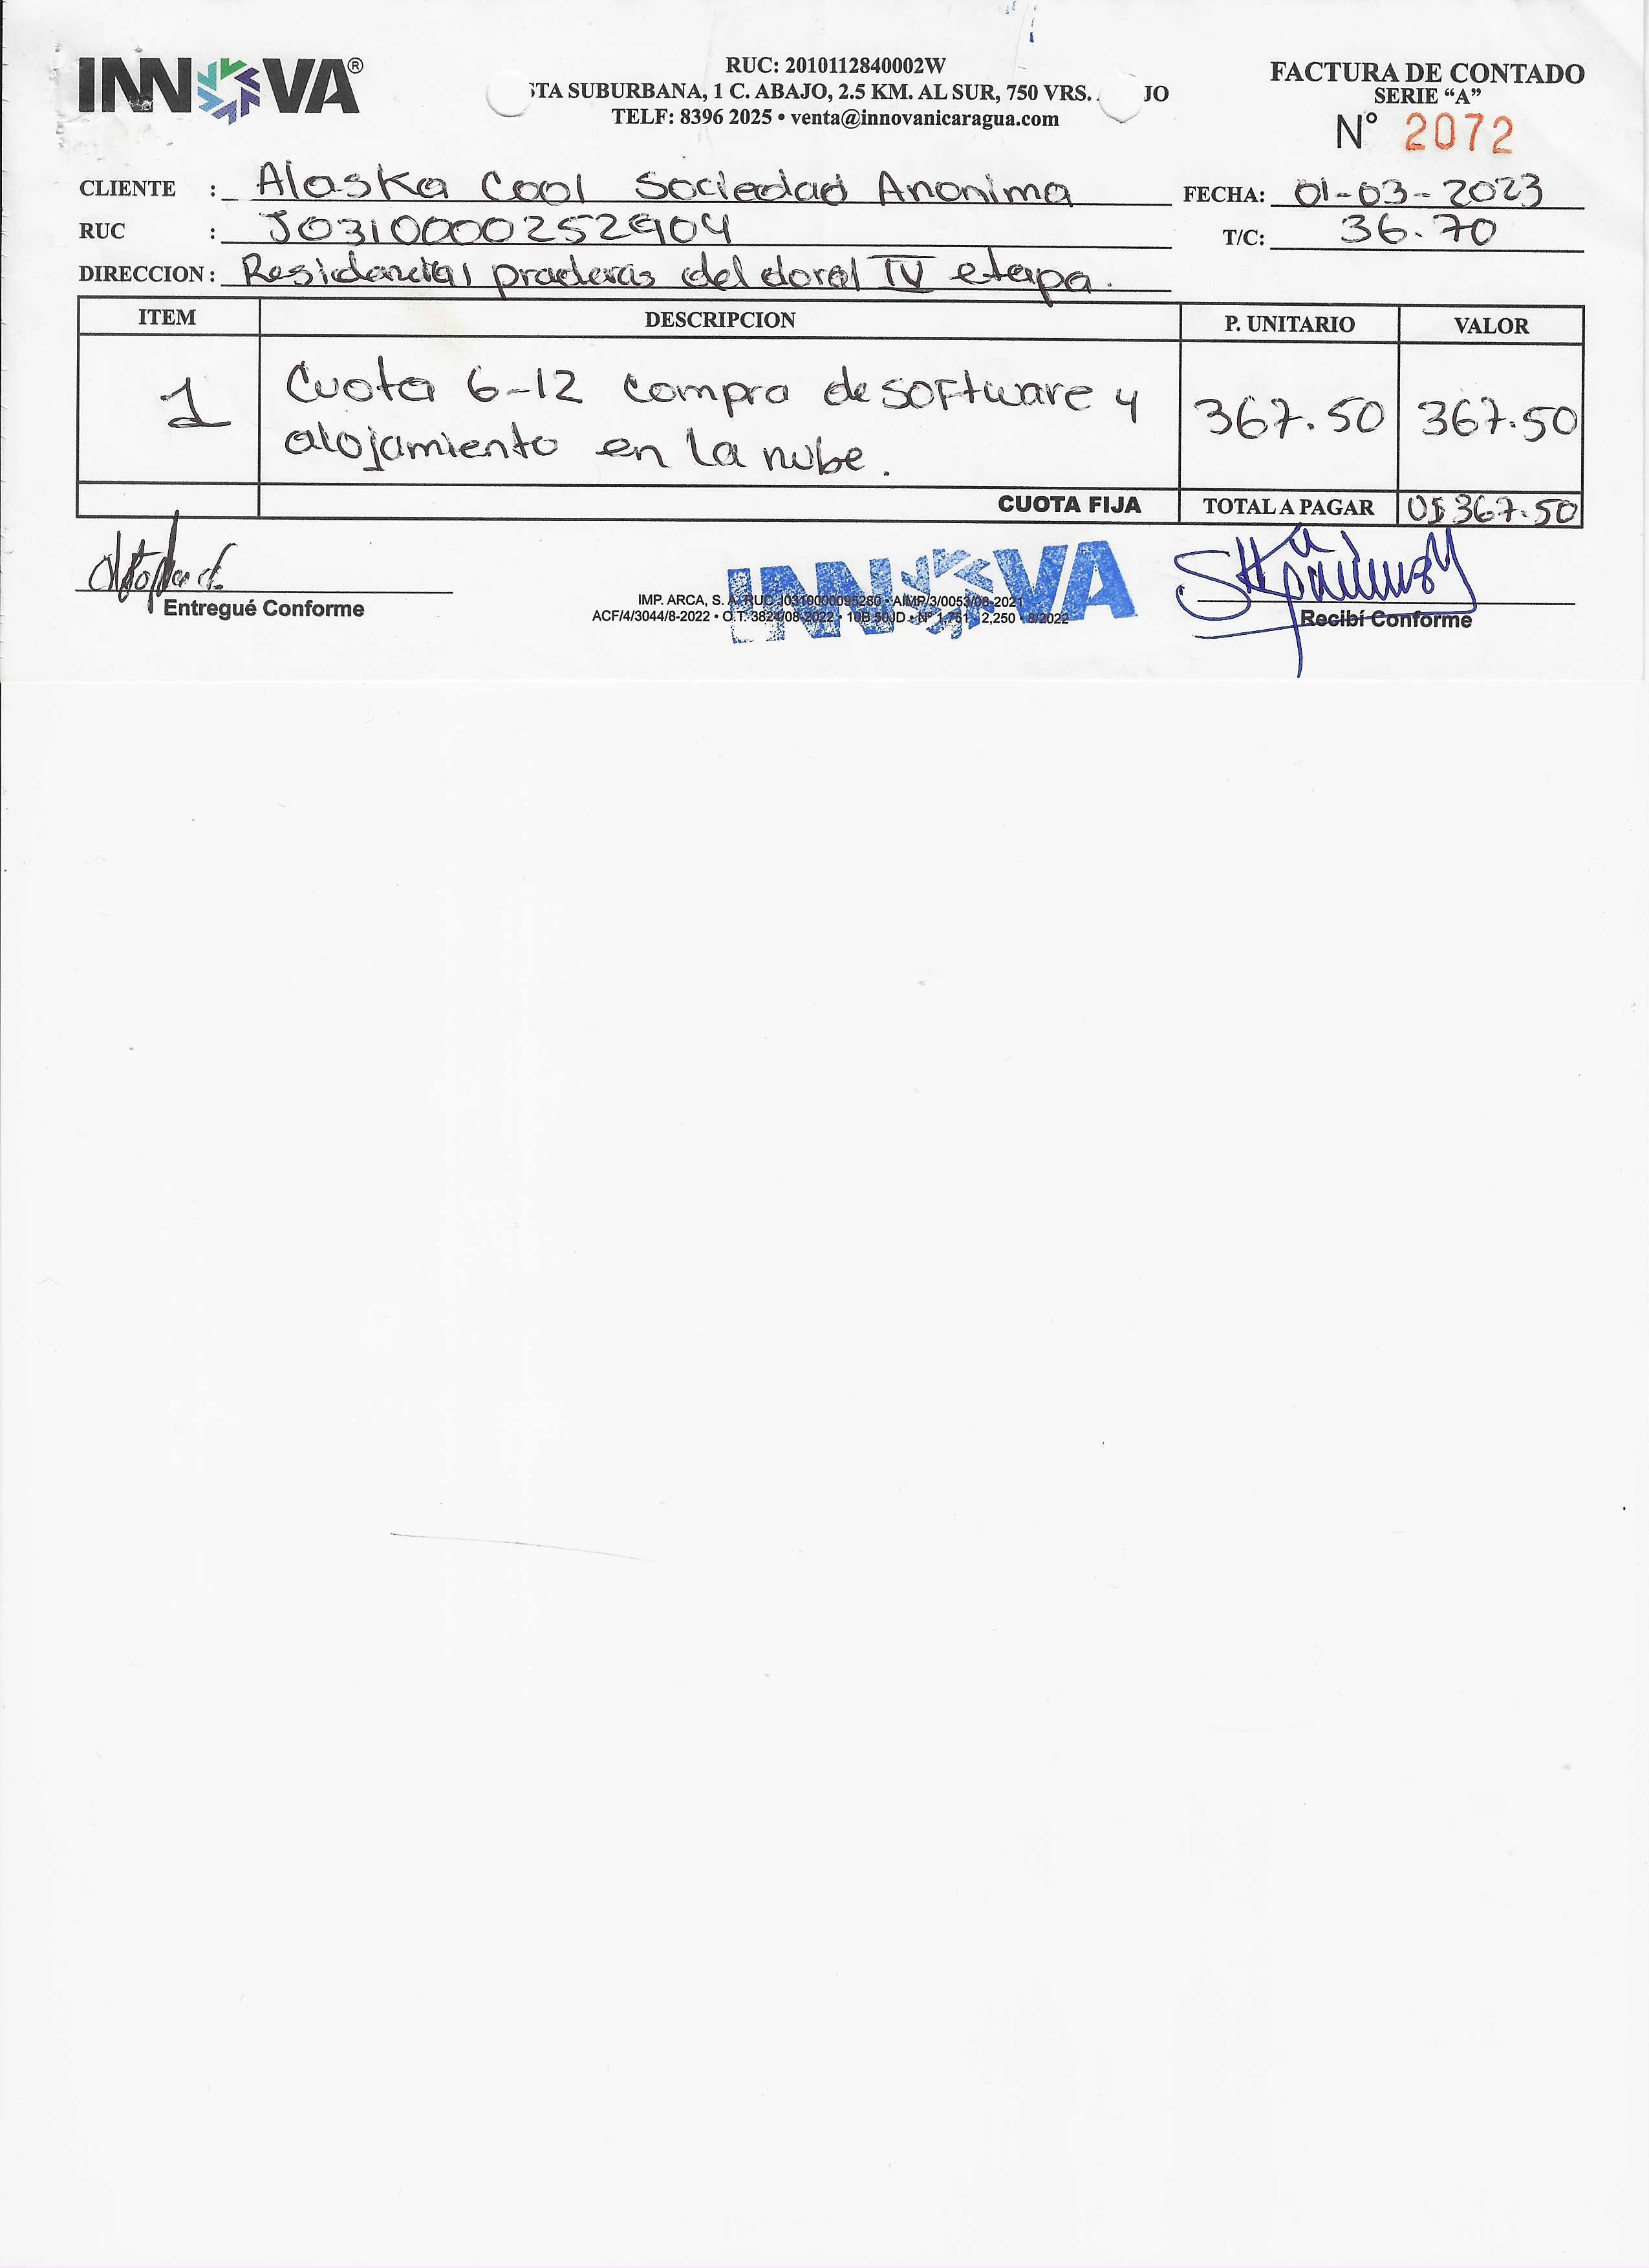 INNOVA®
RUC: 2010112840002W
STA SUBURBANA, 1 C. ABAJO, 2.5 KM. AL SUR, 750 VRS. JO
TELF: 8396 2025 • venta@innovanicaragua.com
FACTURA DE CONTADO
SERIE “A”
N° 2072
CLIENTE : Alaska Cool Sociedad Anonima
FECHA: 01-03-2023
RUC : J0310000252904
T/C: 36.70
DIRECCION: Residencial praderas del doral IV etapa.
ITEM DESCRIPCION P. UNITARIO VALOR
1 Cuota 6-12 compra de software y 367.50 367.50
alojamiento en la nube.
CUOTA FIJA TOTAL A PAGAR U$ 367.50
Entregué Conforme
INNOVA
IMP. ARCA, S. A. RUC J0310000095280 • AIMP/3/0053/08-2021
ACF/4/3044/8-2022 • O.T. 3824/08-2022 • 10B 50JD • N° 1,751 - 2,250 - 8/2022
Recibí Conforme